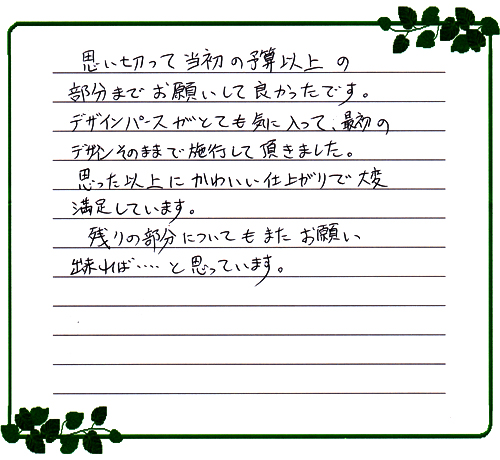 思い切って当初の予算以上の
部分までお願いして良かったです。
デザインパースがとても気に入って、最初の
デザインそのままで施行して頂きました。
思った以上にかわいい仕上がりで大変
満足しています。
残りの部分についてもまたお願い
出来れば‥‥と思っています。